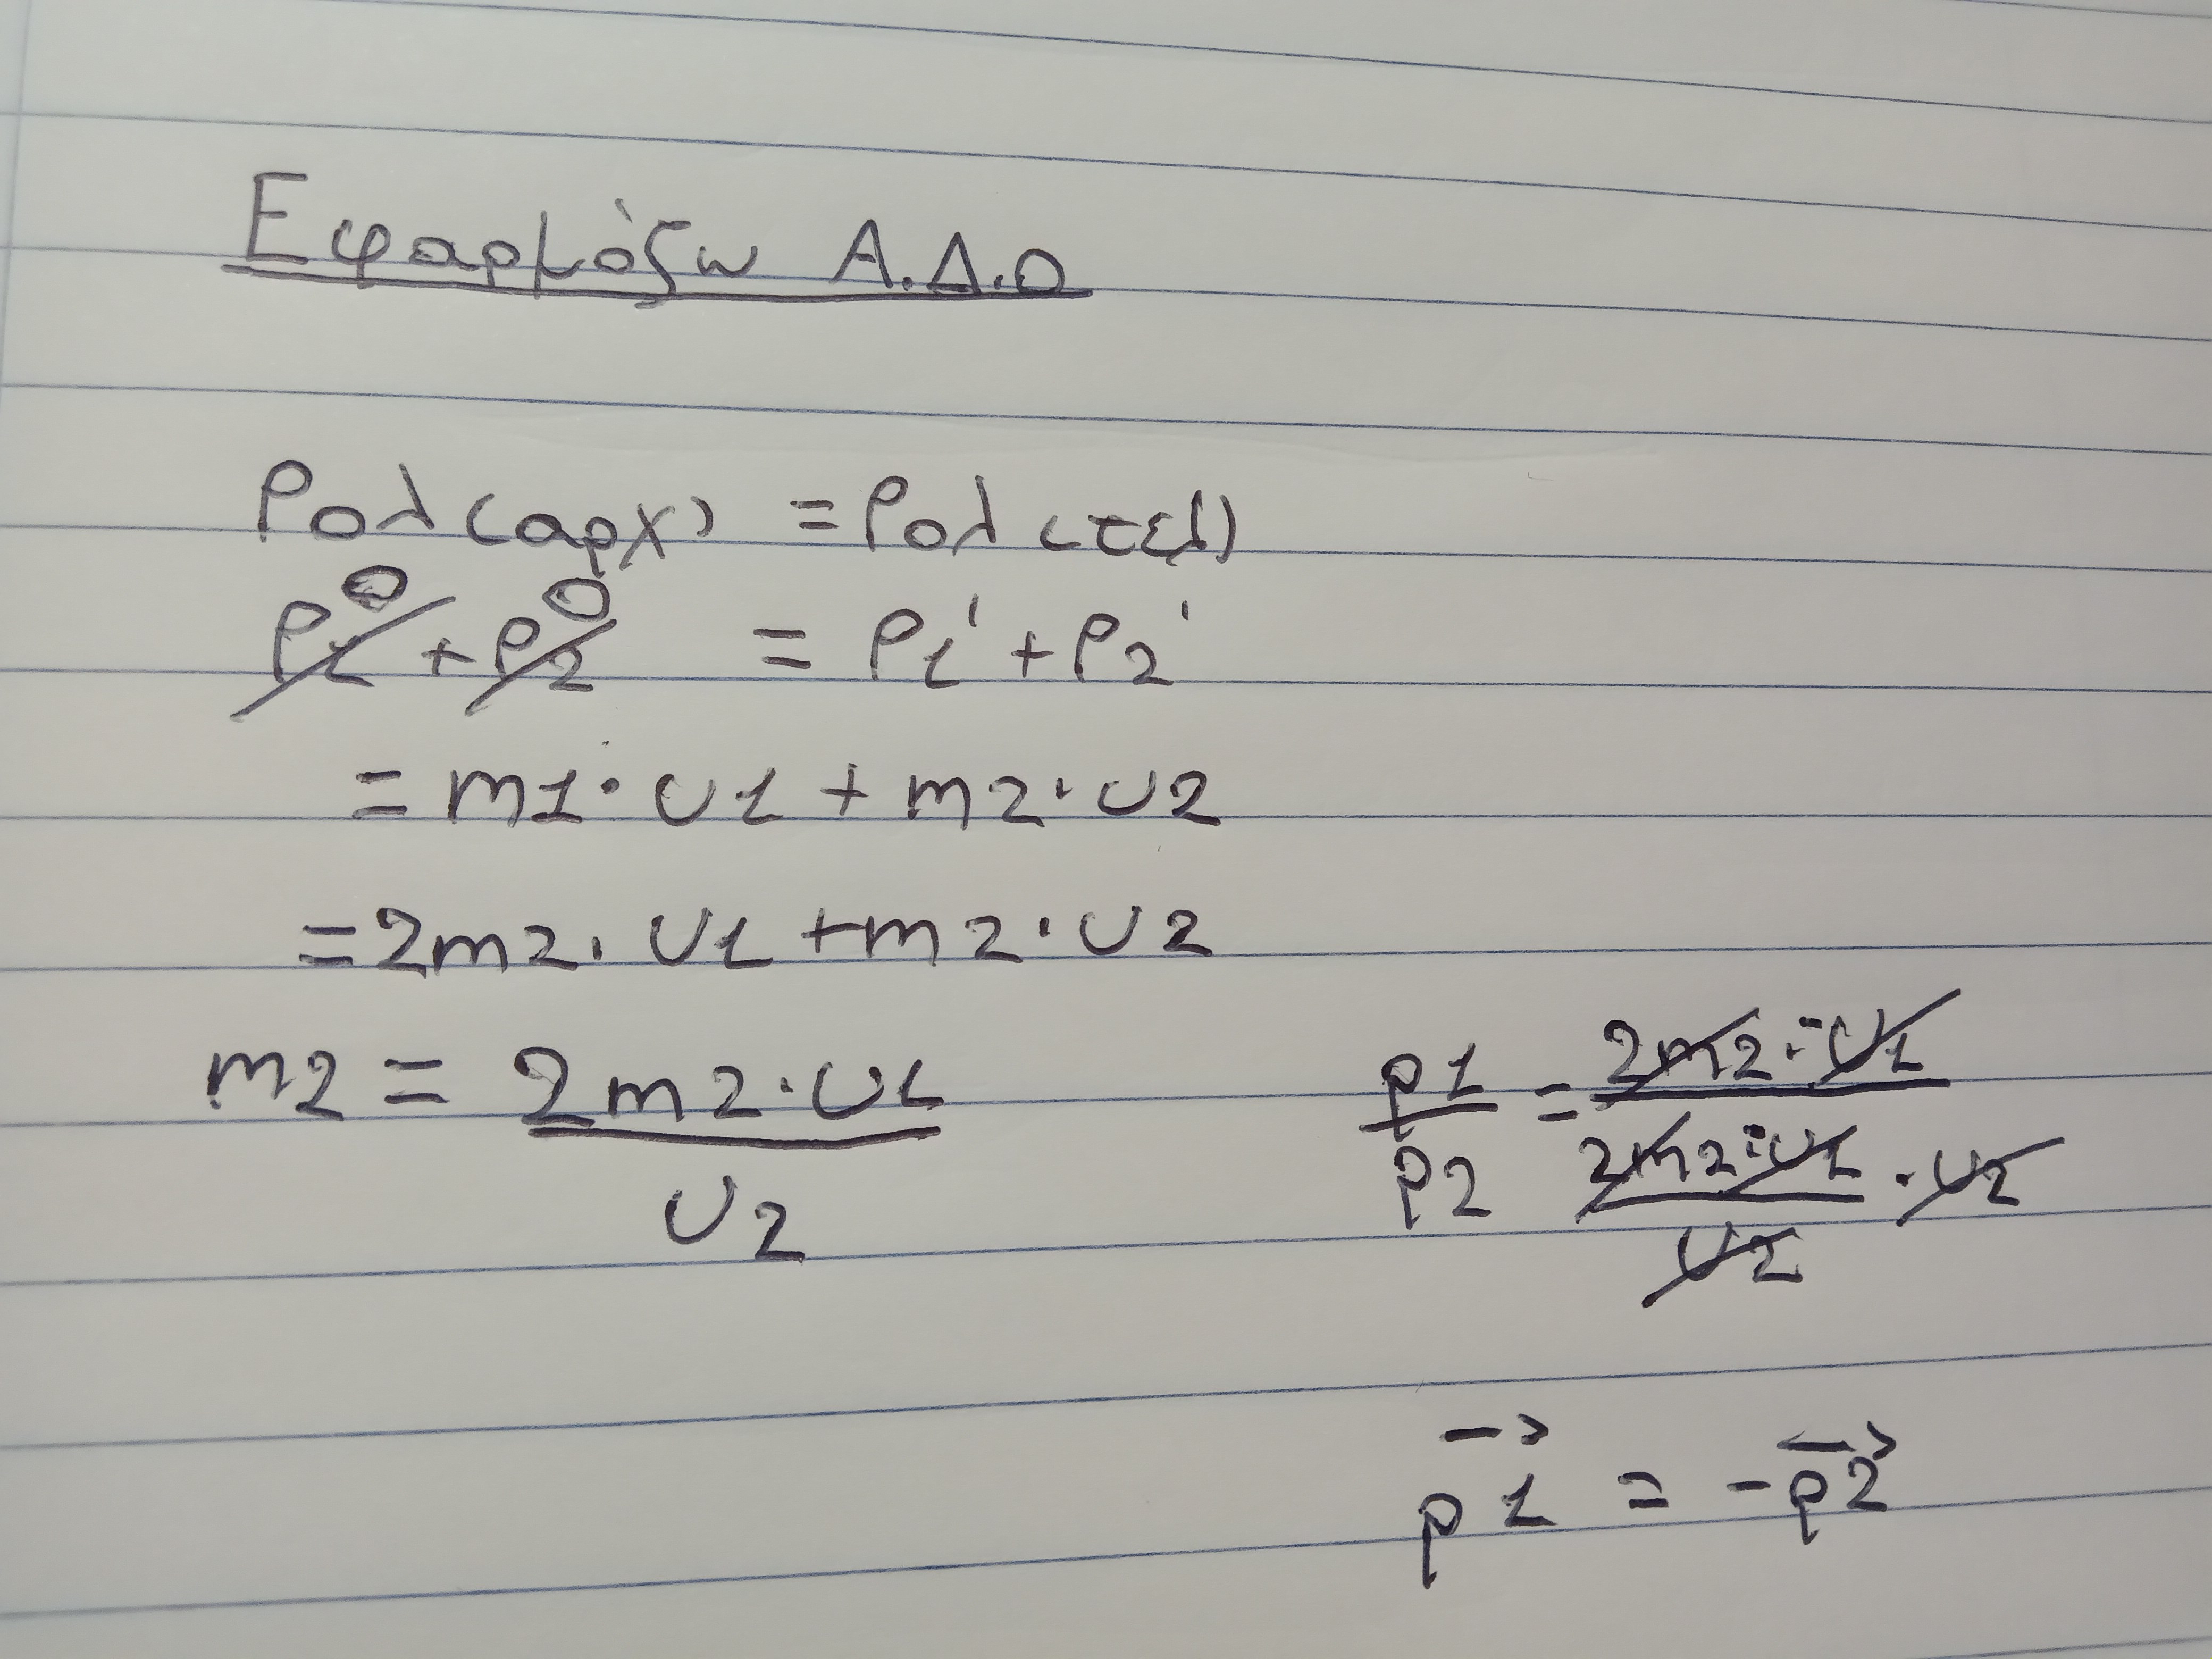 Εφαρμόζω Α.Δ.Ο
Ρολ(αρχ) = Ρολ(τελ)
P1⁰ + P2⁰ = P1' + P2'
= m1 · υ1 + m2 · υ2
= 2m2 · υ1 + m2 · υ2
m2 = 2m2 · υ1 / υ2
p1 / p2 = 2m2 · υ1 / 2m2 · υ1 / υ2 · υ2
p1 = -p2